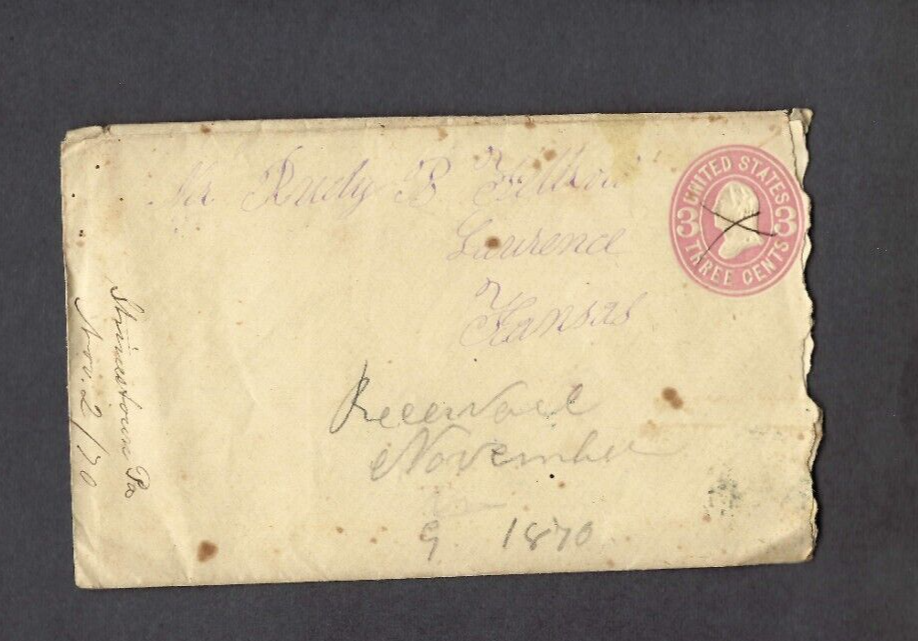 Mr Rudy B
Lawrence
Kansas
UNITED STATES
3 3
THREE CENTS
Strinestown Pa
Nov. 2/70
Receivael
November
9 1870